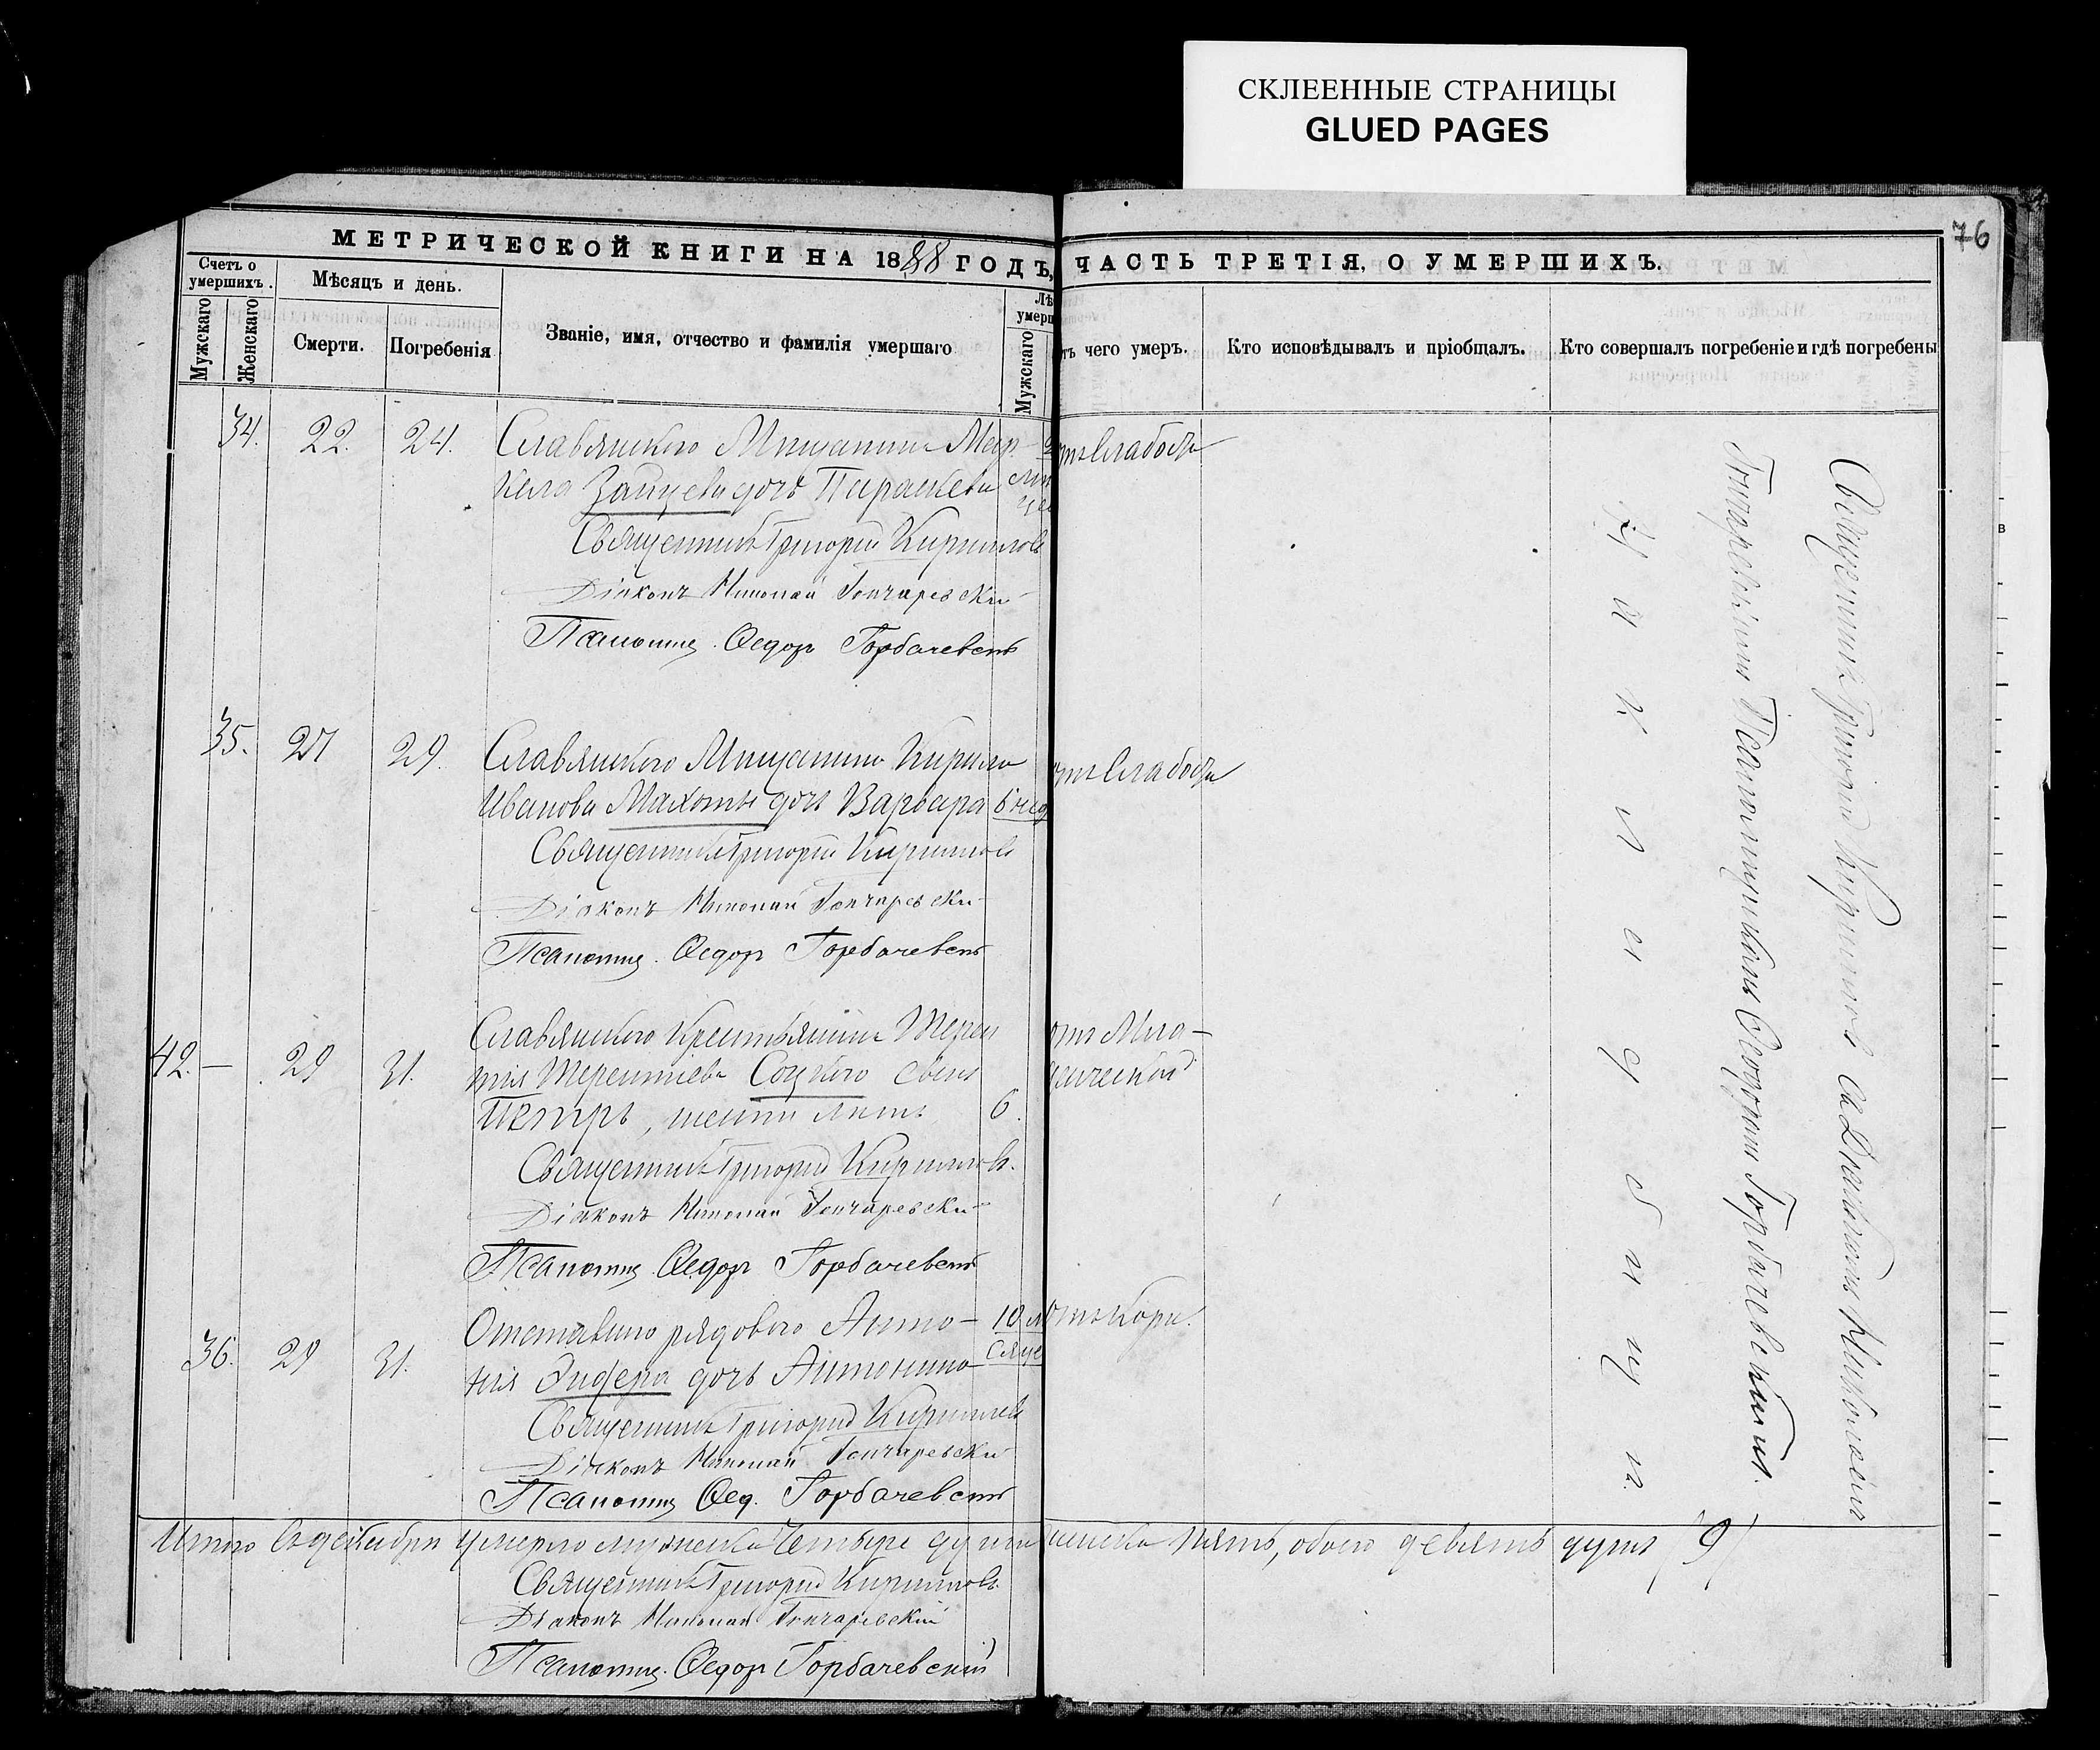 СКЛЕЕННЫЕ СТРАНИЦЫ
GLUED PAGES
76
МЕТРИЧЕСКОЙ КНИГИ НА 1888 ГОДЪ,
ЧАСТЬ ТРЕТІЯ, О УМЕРШИХЪ.
Счетъ о умершихъ.
Мужскаго
Женскаго
Мѣсяцъ и день.
Смерти.
Погребенія
Званіе, имя, отчество и фамилія умершаго
Лѣ
умерш
Мужскаго
тъ чего умеръ.
Кто исповѣдывалъ и пріобщалъ.
Кто совершалъ погребеніе и гдѣ погребены
34. 22. 24. Славянскаго Мѣщанина
Зайцева дочь Параскева
отъ слабости
Священникъ Григорій Кириловъ
Діаконъ Николай Гончаревскій
Псаломщ. Ѳедоръ Горбачевскій
35. 27 29. Славянскаго Мѣщанина Кирила
Иванова Махоты дочь Варвара 6 нед
отъ слабости
Священникъ Григорій Кириловъ
Діаконъ Николай Гончаревскій
Псаломщ. Ѳедоръ Горбачевскій
42. — 29 31. Славянскаго Крестьянина Терен
тія Терентіева Соцкого сынъ
Петръ, шести лѣтъ 6.
Священникъ Григорій Кириловъ.
Діаконъ Николай Гончаревскій
Псаломщ. Ѳедоръ Горбачевскій
36. 29 31. Отставного рядового Анто-
нія дочь Антонина
10 мѣ
сяце
отъ кори.
Священникъ Григорій Кириловъ
Діаконъ Николай Гончаревскій
Псаломщ. Ѳед. Горбачевскій
Священникъ Григорій Кириловъ съ Діакономъ Николаемъ
Гончаревскимъ и Псаломщикомъ Ѳедоромъ Горбачевскимъ.
на кладбищи.
Итого въ декабри умерло мужеска четыре души женска пять, обоего девять душъ (9)
Священникъ Григорій Кириловъ
Діаконъ Николай Гончаревскій
Псаломщ. Ѳедоръ Горбачевскій